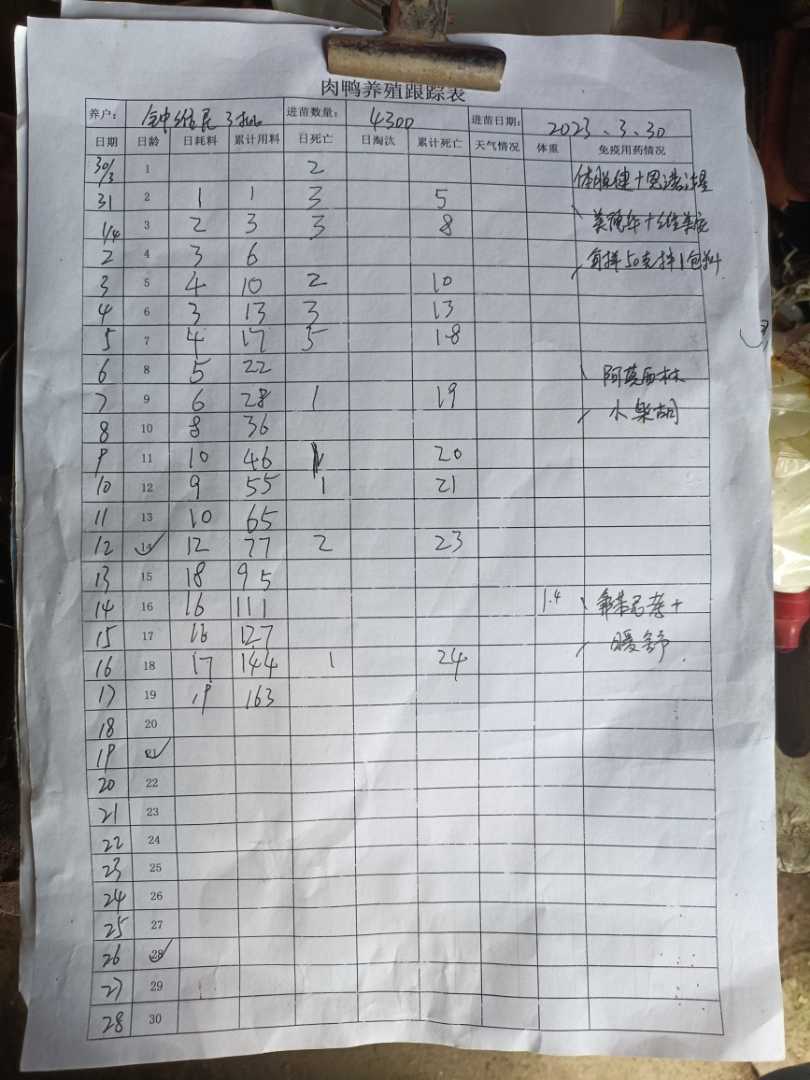 肉鸭养殖跟踪表
养户： 钟维 3批 进苗数量： 4300 进苗日期： 2023.3.30
日期 日龄 日耗料 累计用料 日死亡 日淘汰 累计死亡 天气情况 体重 免疫用药情况
30/3 1 2
31 2 1 1 3 5
1/4 3 2 3 3 8
2 4 3 6 每样50克拌1包料
3 5 4 10 2 10
4 6 3 13 3 13
5 7 4 17 5 18
6 8 5 22 阿莫西林
7 9 6 28 1 19 小柴胡
8 10 8 36
9 11 10 46 1 20
10 12 9 55 1 21
11 13 10 65
12 14 12 77 2 23
13 15 18 95
14 16 16 111 1.4
15 17 16 127 暖舒
16 18 17 144 1 24
17 19 19 163
18 20
19 21
20 22
21 23
22 24
23 25
24 26
25 27
26 28
27 29
28 30